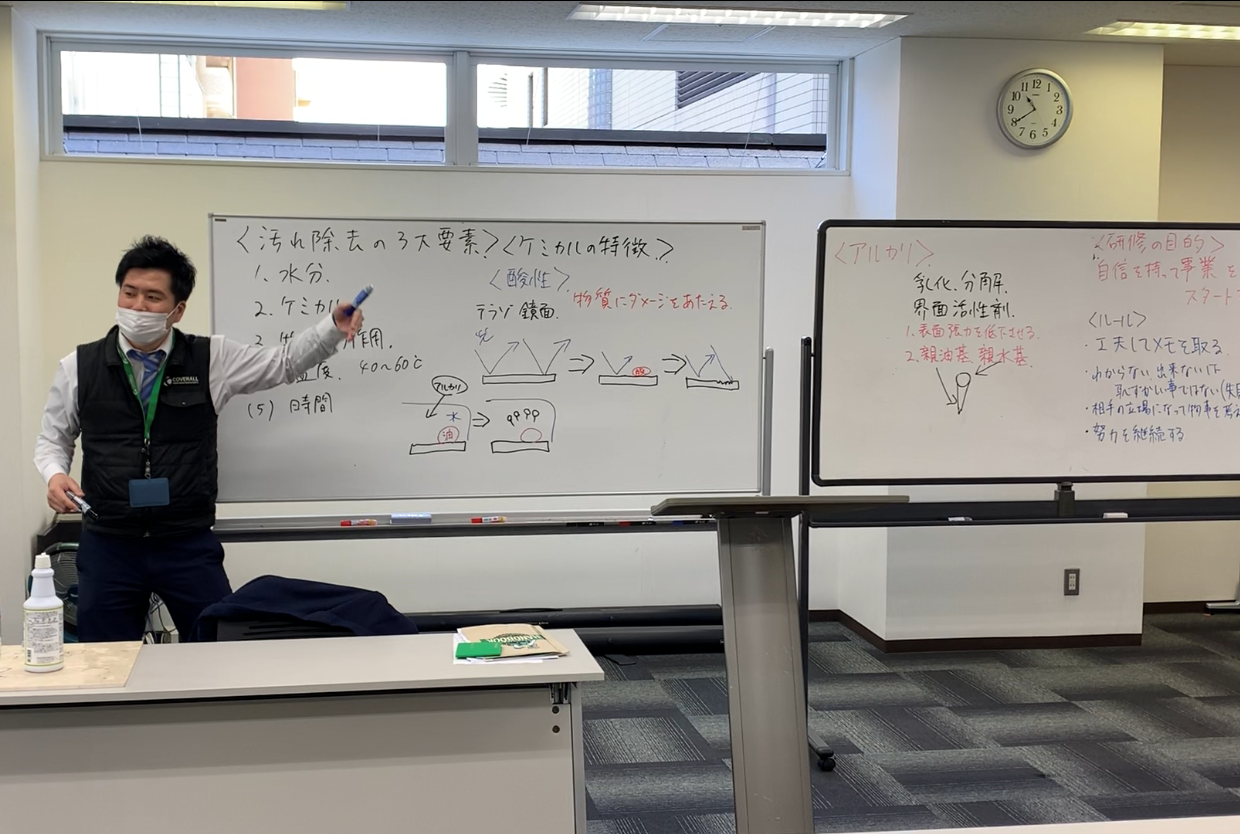 <汚れ除去の3大要素>
1. 水分.
2. ケミカル
3.
作用.
温度. 40~60℃
(5) 時間
<ケミカルの特徴.>
<酸性>.
テラゾ 鏡面.
物質にダメージをあたえる.
光
酸
アルカリ
水
油
<アルカリ>.
乳化. 分解.
界面活性剤.
1. 表面張力を低下させる.
2. 親油基. 親水基.
<研修の目的>
自信を持って事業を
スタート
<ルール>
・工夫してメモを取る
・わからない 出来ない
恥ずかしい事ではない
・相手の立場になって物事を
・努力を継続する
COVERALL
HANDBOOK
12
1
2
3
4
5
6
7
8
9
10
11